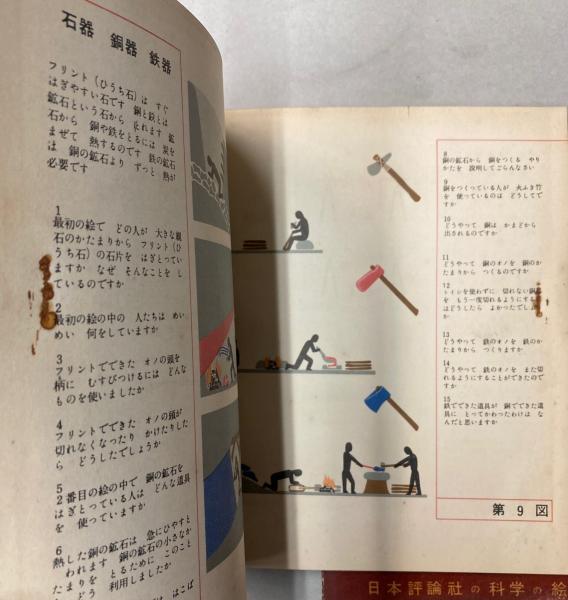 石器 銅器 鉄器
フリント（ひうち石）は すぐ
はぎやすい石です 銅と鉄とは
鉱石という石から とれます 鉱
石から 銅や鉄をとるには 炭を
まぜて 熱するのです 鉄の鉱石
は 銅の鉱石より ずっと 熱が
必要です
1
最初の絵で どの人が 大きな親
石のかたまりから フリント（ひ
うち石）の石片を はぎとってい
ますか なぜ そんなことを し
ているのですか
2
最初の絵の中の 人たちは めい
めい 何をしていますか
3
フリントでできた オノの頭を
柄に むすびつけるには どんな
ものを使いましたか
4
フリントでできた オノの頭が
切れなくなったり かけたりした
ら どうしたでしょうか
5
2番目の絵の中で 銅の鉱石を
はぎとっている人は どんな道具
を 使っていますか
6
熱した銅の鉱石は 急にひやすと
われます 銅の鉱石の小さなか
たまりを とるために このこと
を どう 利用しましたか
はこば
8
銅の鉱石から 銅をつくる やり
かたを 説明してごらんなさい
9
銅をつくっている人が 火ふき竹
を 使っているのは どうしてで
すか
10
どうやって 銅は かまどから
出されるのですか
11
どうやって 銅のオノを 銅のか
たまりから つくるのですか
12
トイシを使わずに 切れない銅器
を もう一度切れるようにする
はどうしたら よかったでしょ
13
どうやって 鉄のオノを 鉄のか
たまりから つくりますか
14
どうやって 鉄のオノを また切
れるようにすることができたので
すか
15
鉄でできた道具が 銅でできた道
具に とってかわったわけは な
んだと思いますか
第9図
日本評論社の科学の絵